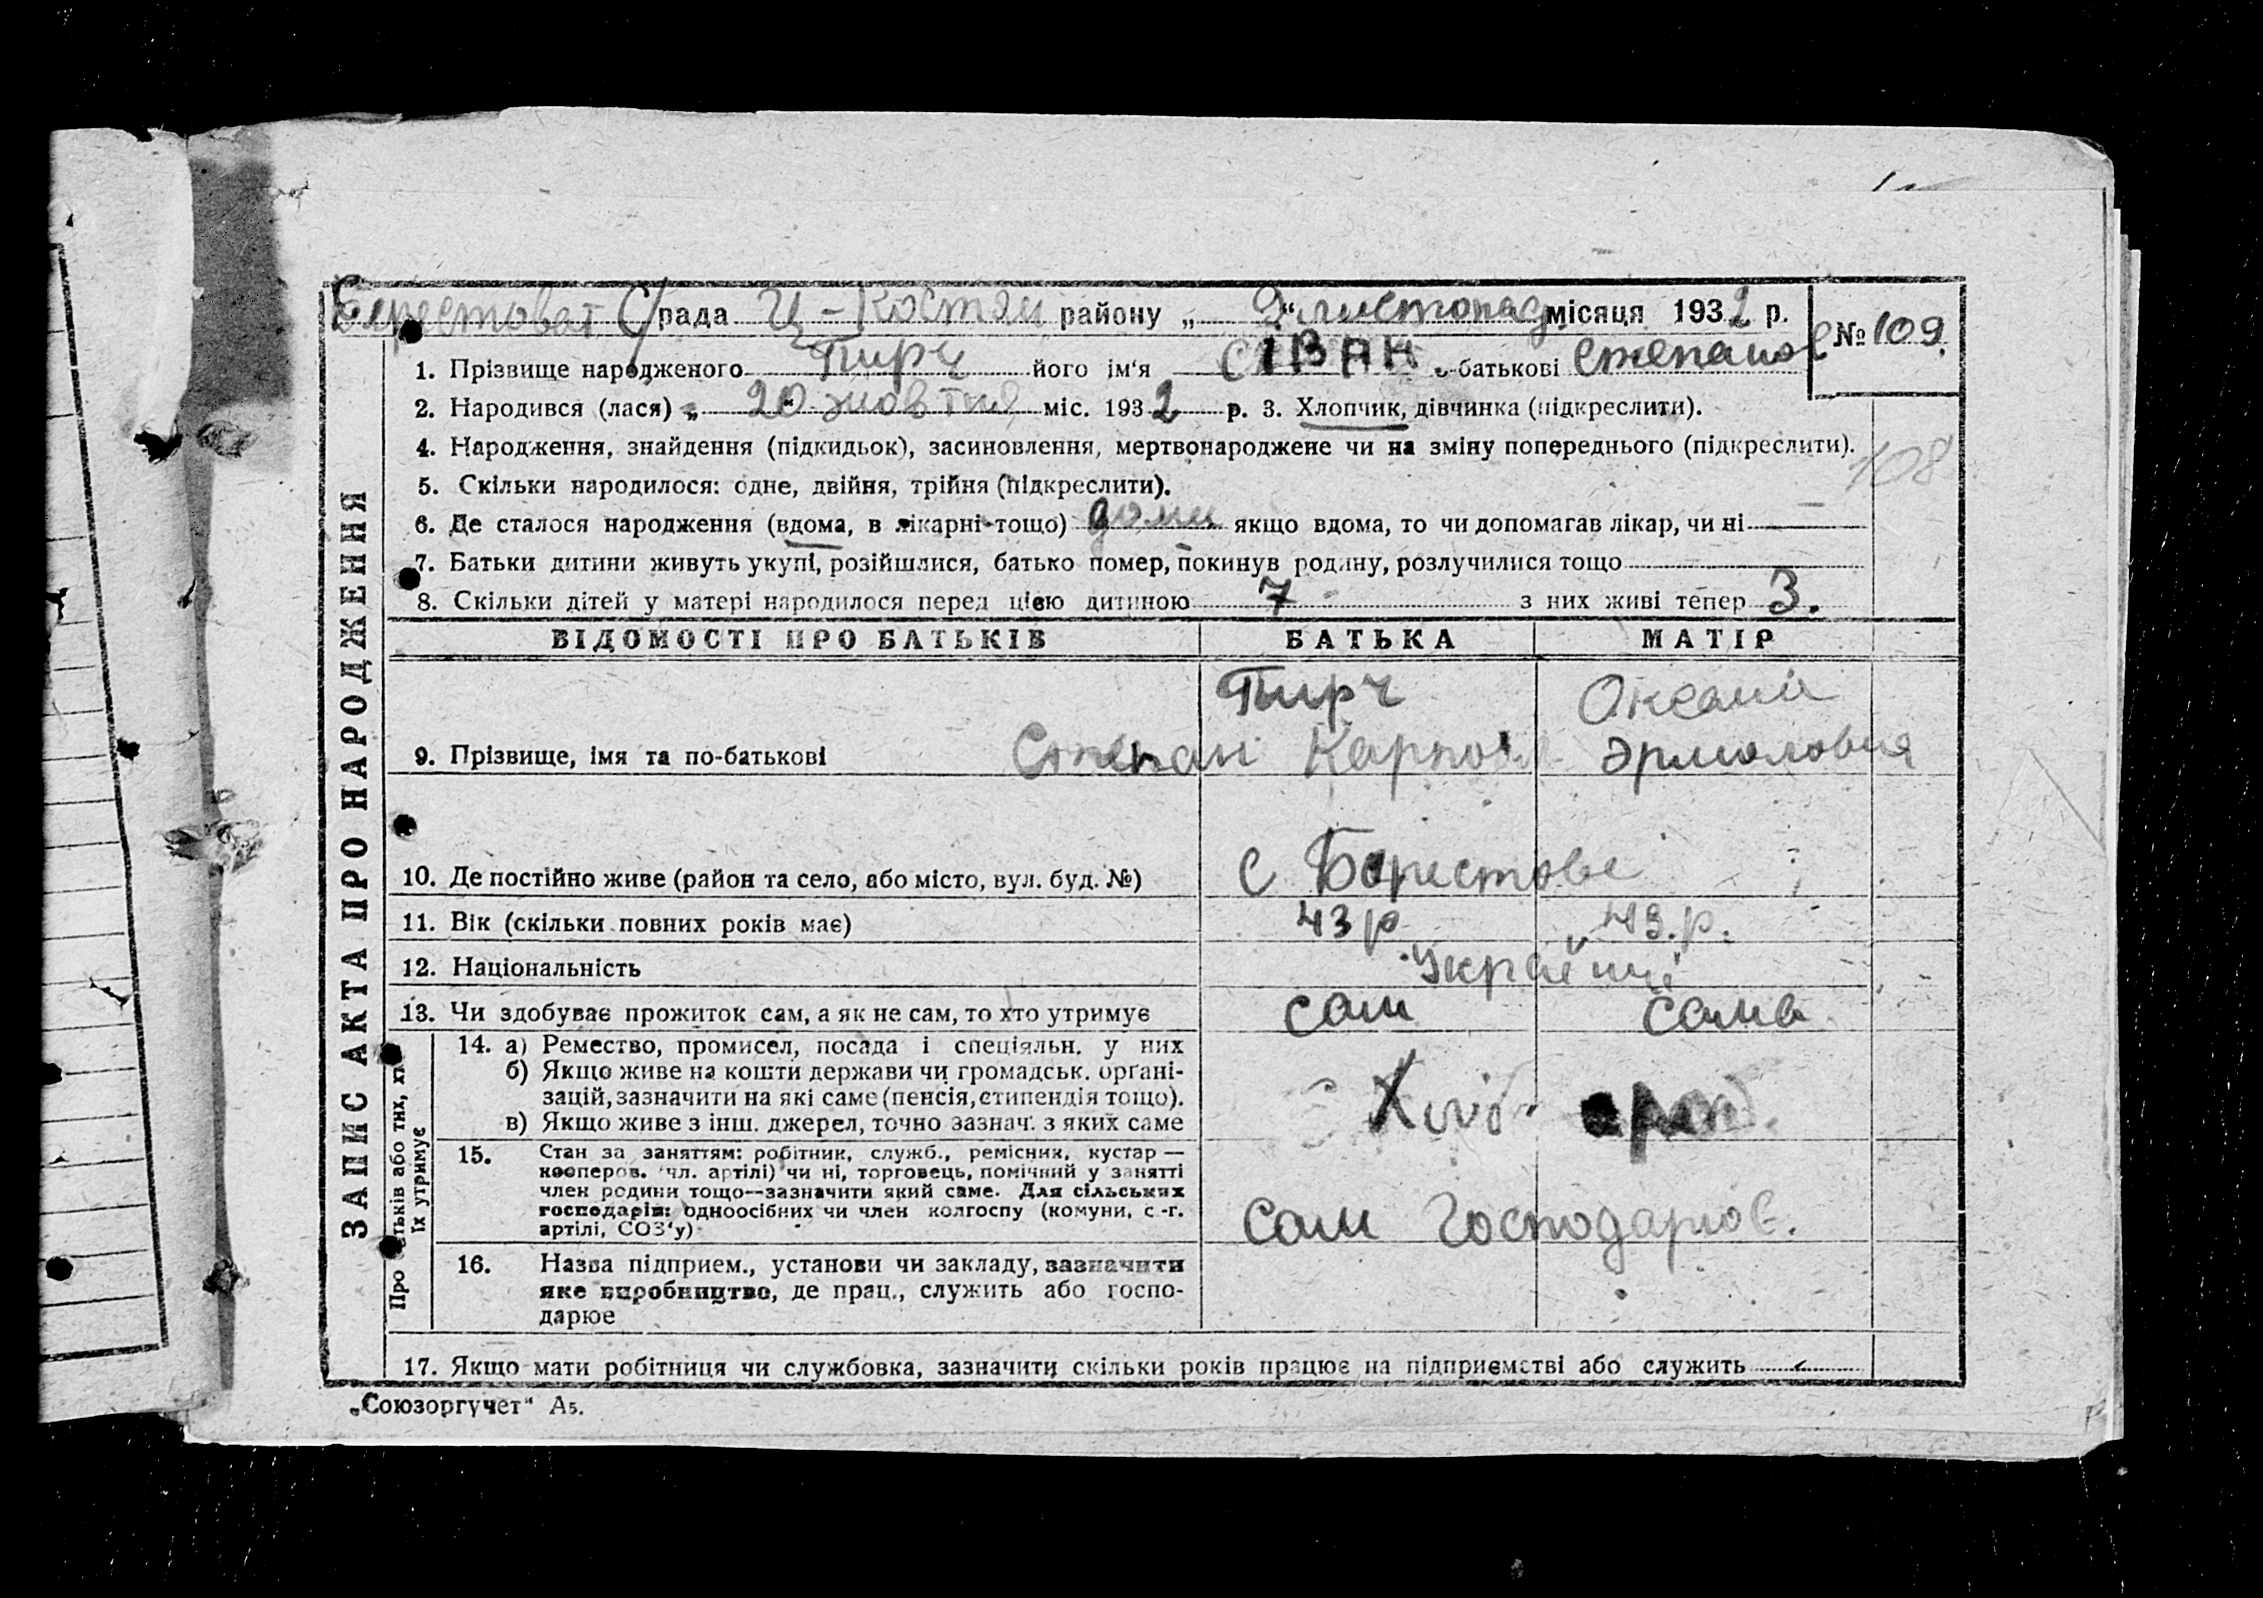 Берестоват С/рада Ц-Костян району „ 2 “ листопад місяця 1932 р.
№ 109
1. Прізвище народженого Пирч його ім'я Іван по-батькові Степанов
2. Народився (лася) „ 20 “ жовтня міс. 1932 р. 3. Хлопчик, дівчинка (підкреслити).
4. Народження, знайдення (підкидьок), засиновлення, мертвонароджене чи на зміну попереднього (підкреслити).
108
5. Скільки народилося: одне, двійня, трійня (підкреслити).
6. Де сталося народження (вдома, в лікарні тощо) дома якщо вдома, то чи допомагав лікар, чи ні —
7. Батьки дитини живуть укупі, розійшлися, батько помер, покинув родину, розлучилися тощо
8. Скільки дітей у матері народилося перед цією дитиною 7 з них живі тепер 3.
ЗАПИС АКТА ПРО НАРОДЖЕННЯ
ВІДОМОСТІ ПРО БАТЬКІВ БАТЬКА МАТІР
Пирч Оксана
9. Прізвище, імя та по-батькові Степан Карпов Эрмоловня
10. Де постійно живе (район та село, або місто, вул. буд. №) с Берестове
11. Вік (скільки повних років має) 43 р 43.р.
12. Національність Україйці
13. Чи здобуває прожиток сам, а як не сам, то хто утримує сам сама
Про батьків або тих, хто
їх утримує
14. а) Ремество, промисел, посада і спеціяльн. у них
б) Якщо живе на кошти держави чи громадськ. органі-
зацій, зазначити на які саме (пенсія, стипендія тощо).
в) Якщо живе з інш. джерел, точно зазнач. з яких саме
Хліб
15. Стан за заняттям: робітник, служб., ремісник, кустар —
кооперов. (чл. артілі) чи ні, торговець, помічний у занятті
член родини тощо—зазначити який саме. Для сільських
господарів: одноосібних чи член колгоспу (комуни, с.-г.
артілі, СОЗ'у)
Сам Господарює.
16. Назва підприєм., установи чи закладу, зазначити
яке виробництво, де прац., служить або госпо-
дарює
17. Якщо мати робітниця чи службовка, зазначити скільки років працює на підприємстві або служить
„Союзоргучет“ А5.